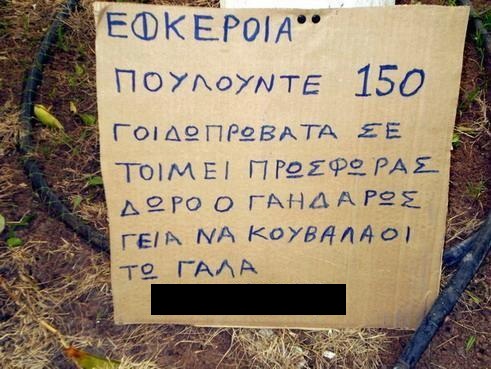 ΕΦΚΕΡΟΙΑ
ΠΟΥΛΟΥΝΤΕ 150
ΓΟΙΔΩΠΡΩΒΑΤΑ ΣΕ
ΤΟΙΜΕΙ ΠΡΩΣΦΩΡΑΣ
ΔΩΡΟ Ο ΓΑΗΔΑΡΩΣ
ΓΕΙΑ ΝΑ ΚΟΥΒΑΛΑΟΙ
ΤΩ ΓΑΛΑ